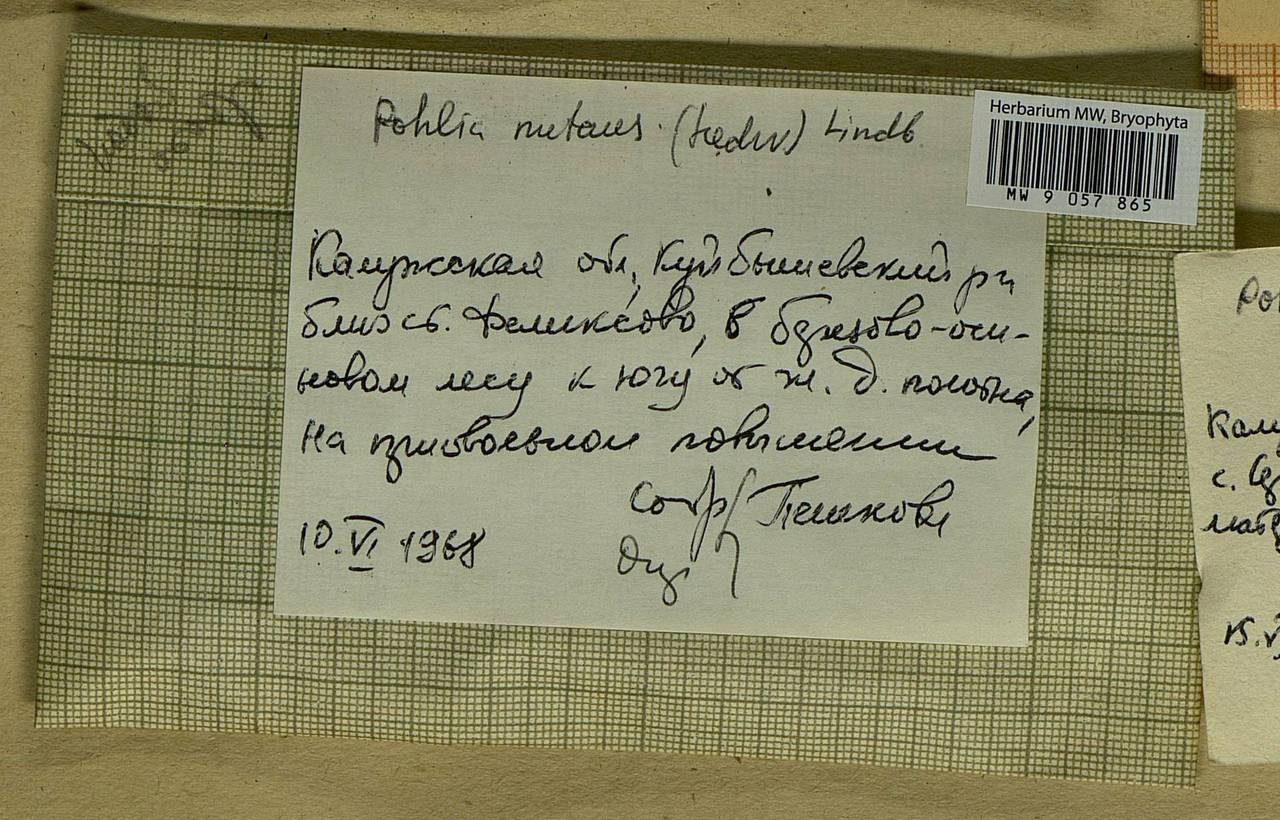 Pohlia nutans (Hedw) Lindb.
Herbarium MW, Bryophyta
MW 9 057 865
Калужская обл, Куйбышевский рн
близ ст. Феликсово, в березово-оси-
новом лесу к югу от ж. д. полотна,
на приствольном повышении
собр Пешкова
Опр
10.VI 1968
Pol
Калу
с.
15.V